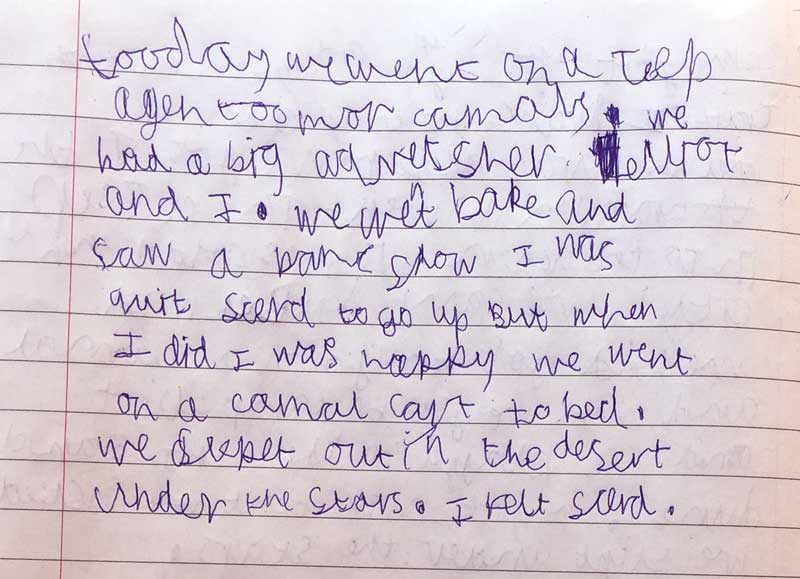 tooday we went on a teep
agen too mor camals. we
had a big advetsher. elliot
and I. we wet bake and
saw a danc show I was
quit scerd to go up But when
I did I was happy we went
on a camal cart to bed.
we slepet out in the desert
under the stars. I felt scerd.